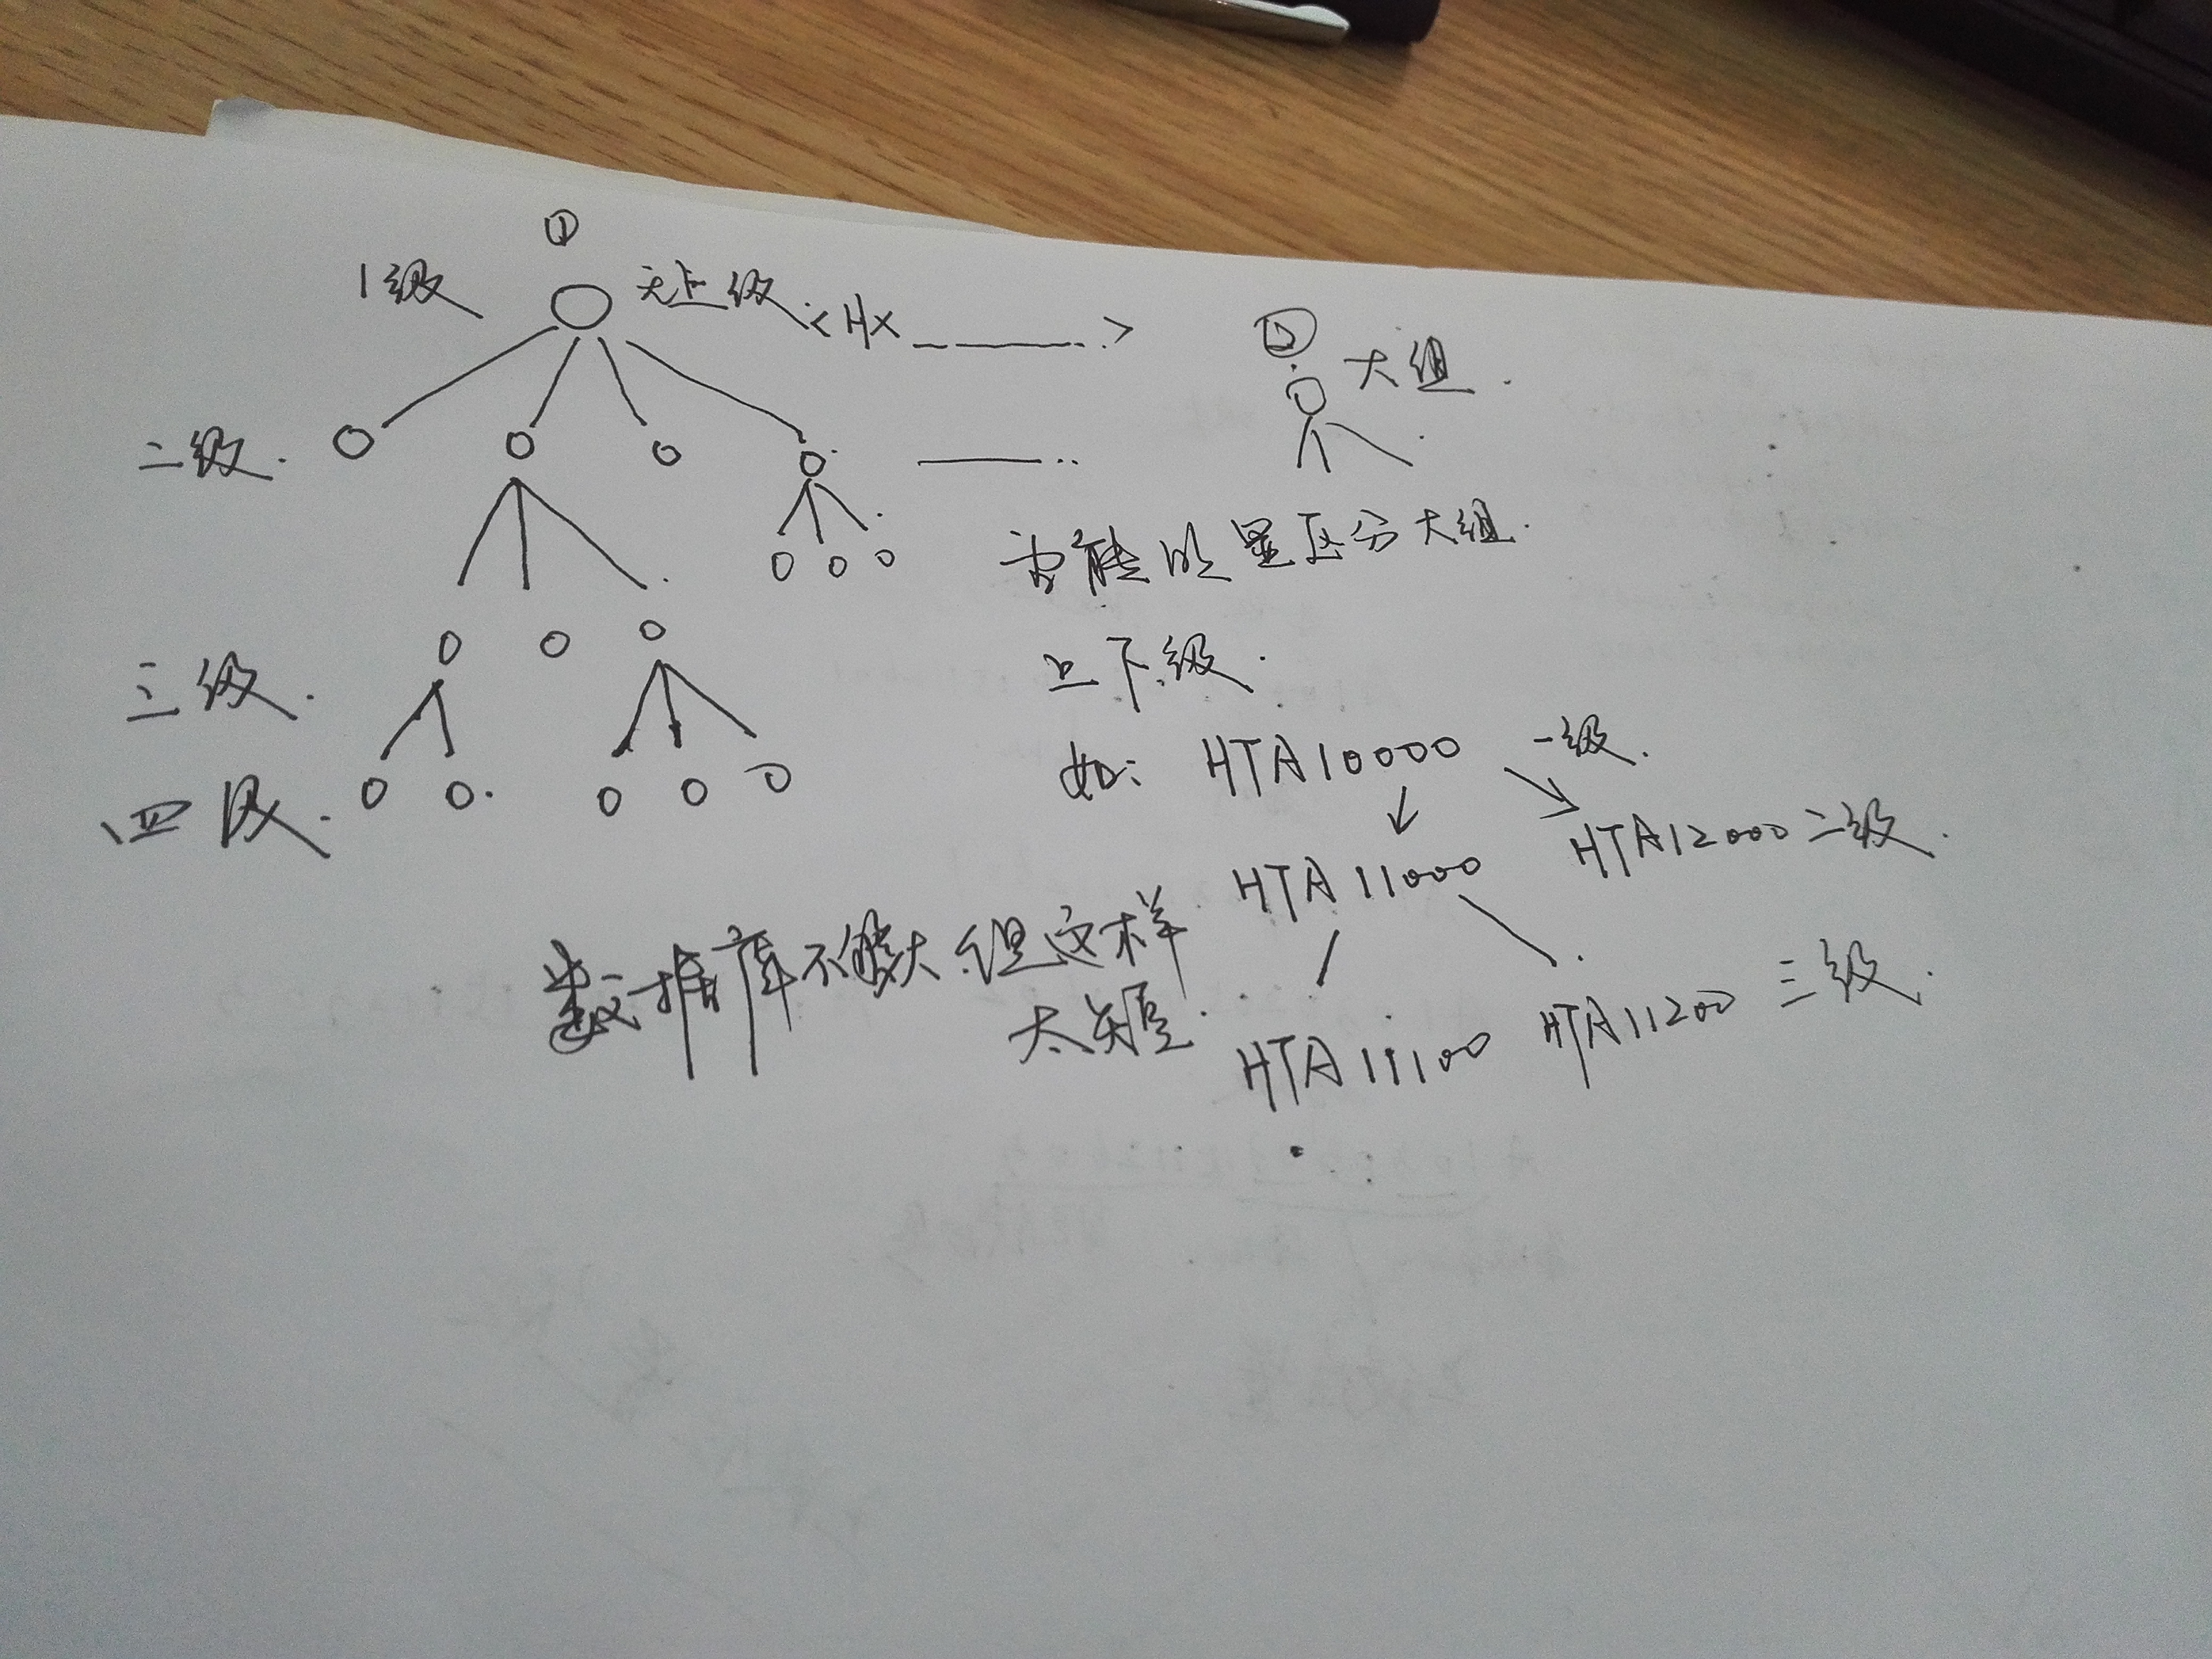 ①
1级 无上级 <HX ——— >
② 大组.
二级.
尽量区分大组.
上下级.
三级.
如: HTA10000 一级.
四级.
HTA11000 HTA12000 二级.
数据库不够大 但这样
太
HTA11100 HTA11200 三级.